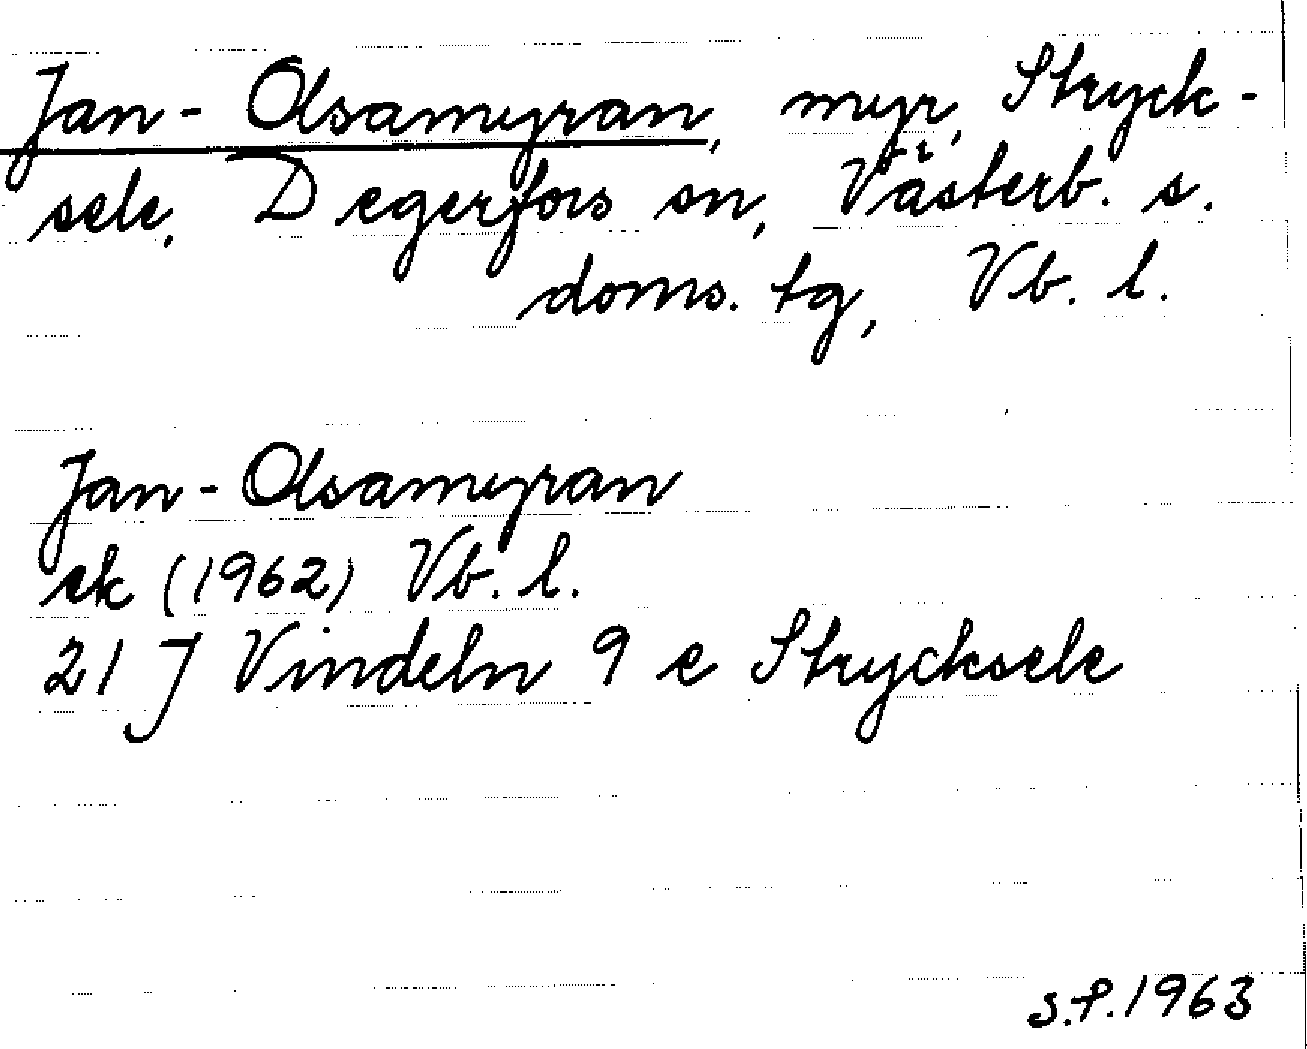 Jan-Olsamyran, myr, Stryck-
sele, Degerfors sn, Västerb. s.
doms. tg, Vb. l.
Jan-Olsamyran
ek (1962) Vb. l.
21 J Vindeln 9 e Strycksele
s.f. 1963